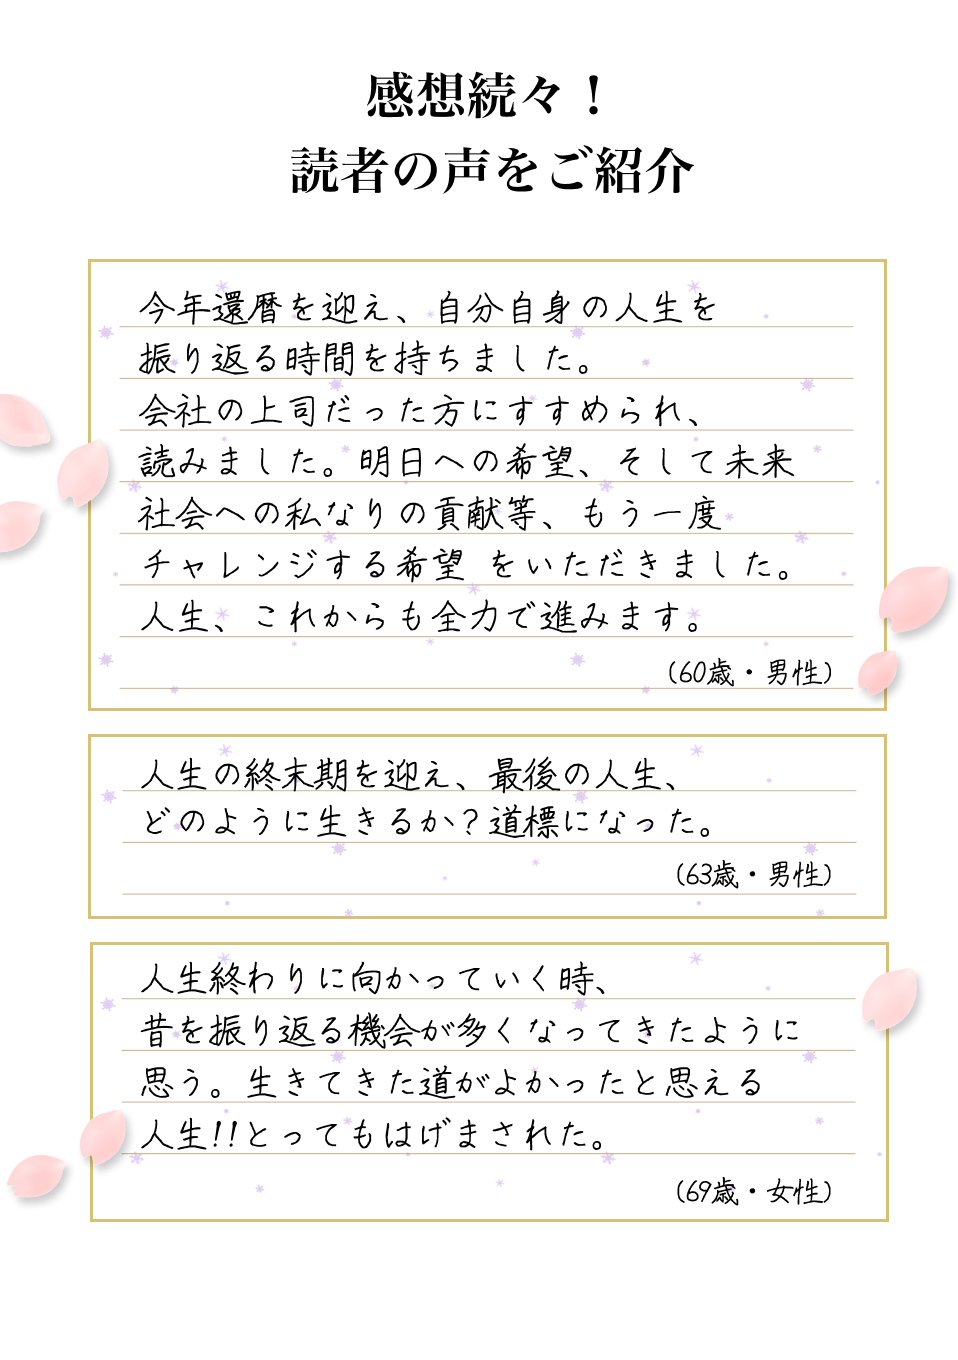 感想続々！
読者の声をご紹介
今年還暦を迎え、自分自身の人生を
振り返る時間を持ちました。
会社の上司だった方にすすめられ、
読みました。明日への希望、そして未来
社会への私なりの貢献等、もう一度
チャレンジする希望 をいただきました。
人生、これからも全力で進みます。
（60歳・男性）
人生の終末期を迎え、最後の人生、
どのように生きるか？道標になった。
（63歳・男性）
人生終わりに向かっていく時、
昔を振り返る機会が多くなってきたように
思う。生きてきた道がよかったと思える
人生!!とってもはげまされた。
（69歳・女性）